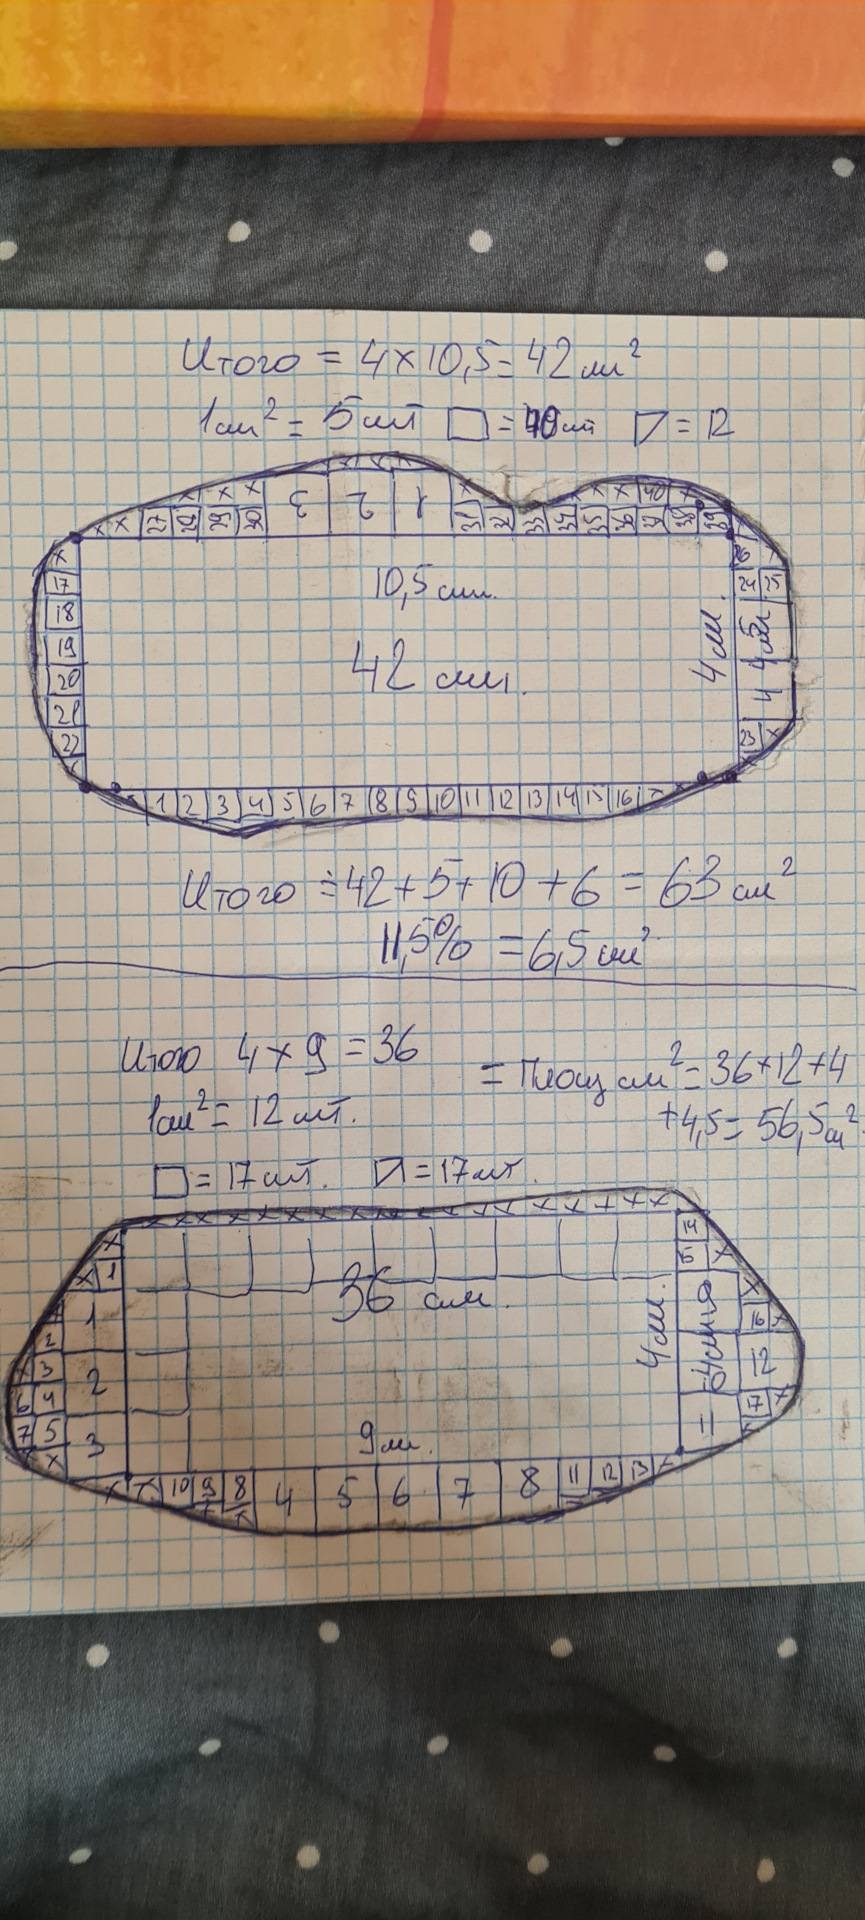 Итого = 4 × 10,5 = 42 см²
1см² = 5 шт □ = 40 шт = 12
x x x x x
3 2 1
x x x 40 x
x x 27 28 29 30 31 32 33 34 35 36 37 38 39
x 26
17 10,5 см. 24 25
18
19 4 см. 5
20 42 см. 4
21
22 23 x
1 2 3 4 5 6 7 8 9 10 11 12 13 14 15 16 x x
Итого = 42 + 5 + 10 + 6 = 63 см²
11,5% = 6,5 см²
Итого 4 × 9 = 36
= Площ см² = 36 + 12 + 4
+ 4,5 = 56,5 см²
1см² = 12 шт.
□ = 17 шт. = 17 шт.
x x x x x x x x x x x x x x x x x
x 14
x 1 x
1 36 см. 4 см. x
2 16 x
3 2 12
6 4 17 x
7 5 3 9 см. 11
x x
x x 10 9 8 4 5 6 7 8 11 12 13 x